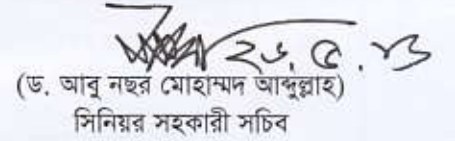 (ড. আবু নছর মোহাম্মদ আব্দুল্লাহ)
সিনিয়র সহকারী সচিব